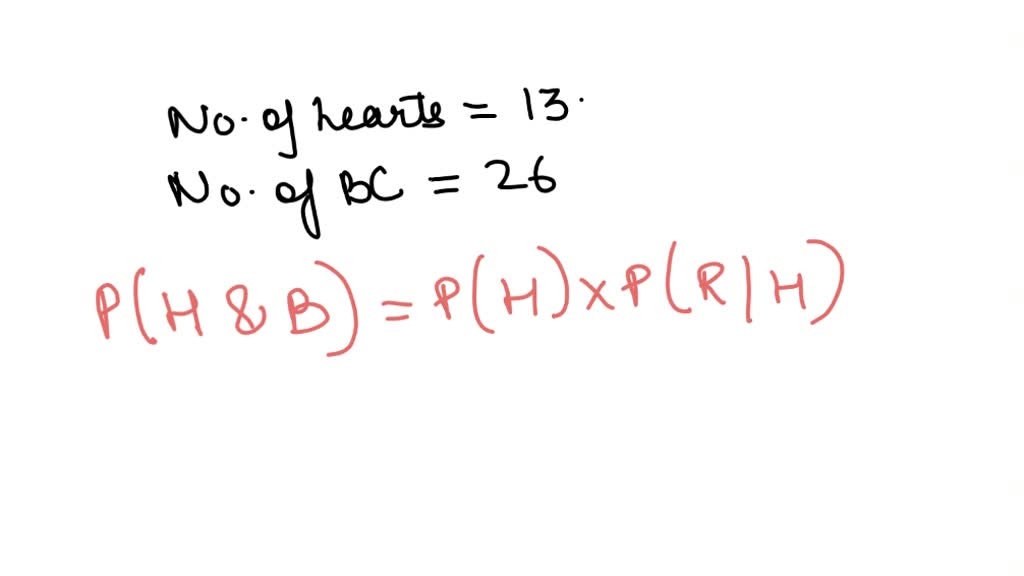 No. of hearts = 13.
No. of BC = 26
P(H & B) = P(H) x P(R | H)